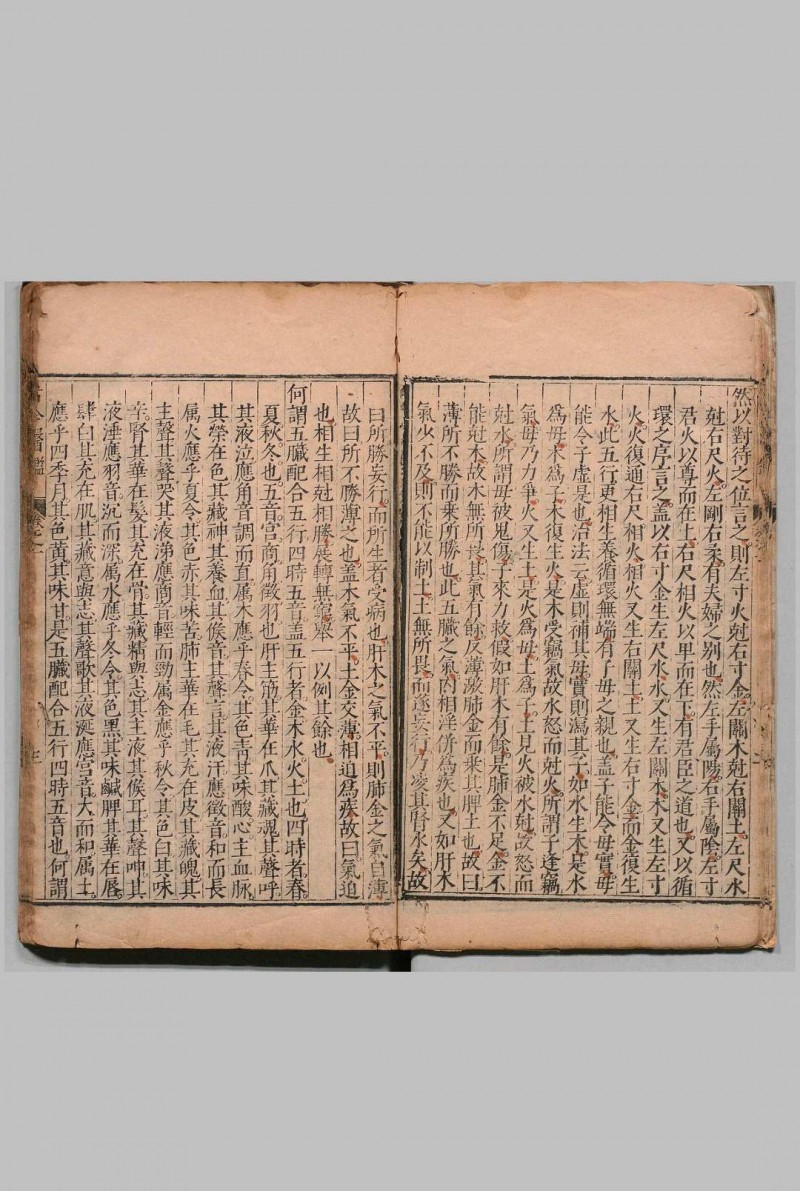 然以對待之位言之則左寸火尅右寸金左關木尅右關土左尺水
尅右尺火左剛右柔有夫婦之别也然左手屬陽右手屬隂左寸
君火以尊而在上右尺相火以卑而在下有君臣之道也又以循
環之序言之蓋以右寸金生左尺水水又生左關木木又生左寸
火火復通右尺相火相火又生右關土土又生右寸金而金復生
水此五行更相生養循環無端有子母之親也盖子能令母實母
能令子虚是也治法云虚則補其母實則瀉其子如水生木是水
爲母木爲子木復生火是木受竊氣故水怒而尅火所謂子逢竊
氣母乃力爭火又生土是火爲母土爲子土見火被水尅故怒而
尅水所謂母被鬼傷子來力救假如肝木有餘是肺金不足金不
能尅木故木無所畏其氣有餘反薄㵋肺金而乘其脾土也故曰
薄所不勝而乘所勝也此五臟之氣内相淫併爲疾也又如肝木
氣少不及則不能以制土土無所畏而遂妄行乃凌其腎水矣故
曰所勝妄行而所生者受病也肝木之氣不平則肺金之氣自薄
故曰所不勝薄之也盖木氣不平土金交薄相迫爲疾故曰氣迫
也相生相尅相勝展轉無窮舉一以例其餘也
何謂五臟配合五行四時五音盖五行者金木水火土也四時者春
夏秋冬也五音宫商角徵羽也肝主筋其華在爪其藏魂其聲呼
其液泣應角音調而直属木應乎春令其色青其味酸心主血脉
其榮在色其藏神其養血其候音其聲言其液汗應徵音和而長
属火應乎夏令其色赤其味苦肺主華在毛其充在皮其藏魄其
主聲其聲哭其液涕應商音輕而勁属金應乎秋令其色白其味
辛腎其華在髮其充在骨其藏精與志其主液其候耳其聲呻其
液涶應羽音沉而深属水應乎冬令其色黑其味鹹脾其華在唇
肆白其充在肌其藏意與志其聲歌其液涎應宫音大而和属土
應乎四季月其色黄其味甘是五臟配合五行四時五音也何謂
古今醫鑑 卷之一